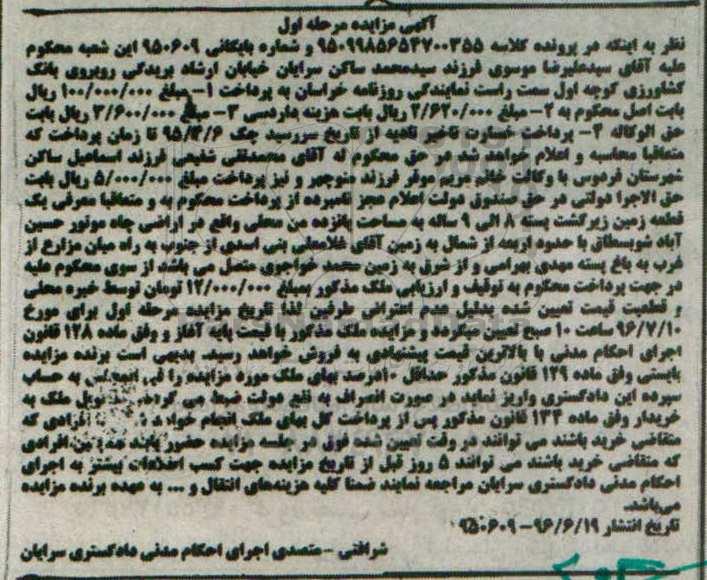 آگهی مزایده مرحله اول
نظر به اینکه در پرونده کلاسه ۹۵۰۹۹۸۵۶۵۴۷۰۰۳۵۵ و شماره بایگانی ۹۵۰۶۰۹ این شعبه محکوم
علیه آقای سیدعلیرضا موسوی فرزند سیدمحمد ساکن سرایان خیابان ارشاد بریدگی روبروی بانک
کشاورزی کوچه اول سمت راست نمایندگی روزنامه خراسان به پرداخت ۱- مبلغ ۱۰۰/۰۰۰/۰۰۰ ریال
بابت اصل محکوم به ۲- مبلغ ۲/۶۲۰/۰۰۰ ریال بابت هزینه دادرسی ۳- مبلغ ۳/۶۰۰/۰۰۰ ریال بابت
حق الوکاله ۴- پرداخت خسارت تاخیر تادیه از تاریخ سررسید چک ۹۵/۳/۶ تا زمان پرداخت که
متعاقبا محاسبه و اعلام خواهد شد، در حق محکوم له آقای محمدتقی شفیعی فرزند اسماعیل ساکن
شهرستان فردوس با وکالت خانم مریم موقر فرزند منوچهر و نیز پرداخت مبلغ ۵/۰۰۰/۰۰۰ ریال بابت
حق الاجرا دولتی در حق صندوق دولت اعلام عجز نامبرده از پرداخت محکوم به و متعاقبا معرفی یک
قطعه زمین زیرکشت پسته ۸ الی ۹ ساله به مساحت پانزده من محلی واقع در اراضی چاه موتور حسین
آباد شوسطاق با حدود اربعه از شمال به زمین آقای غلامعلی بنی اسدی از جنوب به راه میان مزارع از
غرب به باغ پسته مهدی بهرامی و از شرق به زمین محمد خواجوی متصل می باشد از سوی محکوم علیه
در جهت پرداخت محکوم به توقیف و ارزیابی ملک مذکور بمبلغ ۱۲/۰۰۰/۰۰۰ تومان توسط خبره محلی
و قطعیت قیمت تعیین شده بدلیل عدم اعتراض طرفین لذا تاریخ مزایده مرحله اول برای مورخ
۹۶/۷/۱۰ ساعت ۱۰ صبح تعیین میگردد و مزایده ملک مذکور با قیمت پایه آغاز و وفق ماده ۱۲۸ قانون
اجرای احکام مدنی با بالاترین قیمت پیشنهادی به فروش خواهد رسید. بدیهی است برنده مزایده
بایستی وفق ماده ۱۲۹ قانون مذکور حداقل ۱۰درصد بهای ملک مورد مزایده را فی المجلس به حساب
سپرده این دادگستری واریز نماید در صورت انصراف به نفع دولت ضبط می گردد. تحویل ملک به
خریدار وفق ماده ۱۳۴ قانون مذکور پس از پرداخت کل بهای ملک انجام خواهد افرادی که
متقاضی خرید باشند می توانند در وقت تعیین شده فوق در جلسه مزایده حضور یابند افرادی
که متقاضی خرید باشند می توانند ۵ روز قبل از تاریخ مزایده جهت کسب اطلاعات بیشتر به اجرای
احکام مدنی دادگستری سرایان مراجعه نمایند ضمنا کلیه هزینه‌های انتقال و ... به عهده برنده مزایده
می‌باشد.
تاریخ انتشار ۹۶/۶/۱۹-۹۵۰۶۰۹
شرافتی - متصدی اجرای احکام مدنی دادگستری سرایان